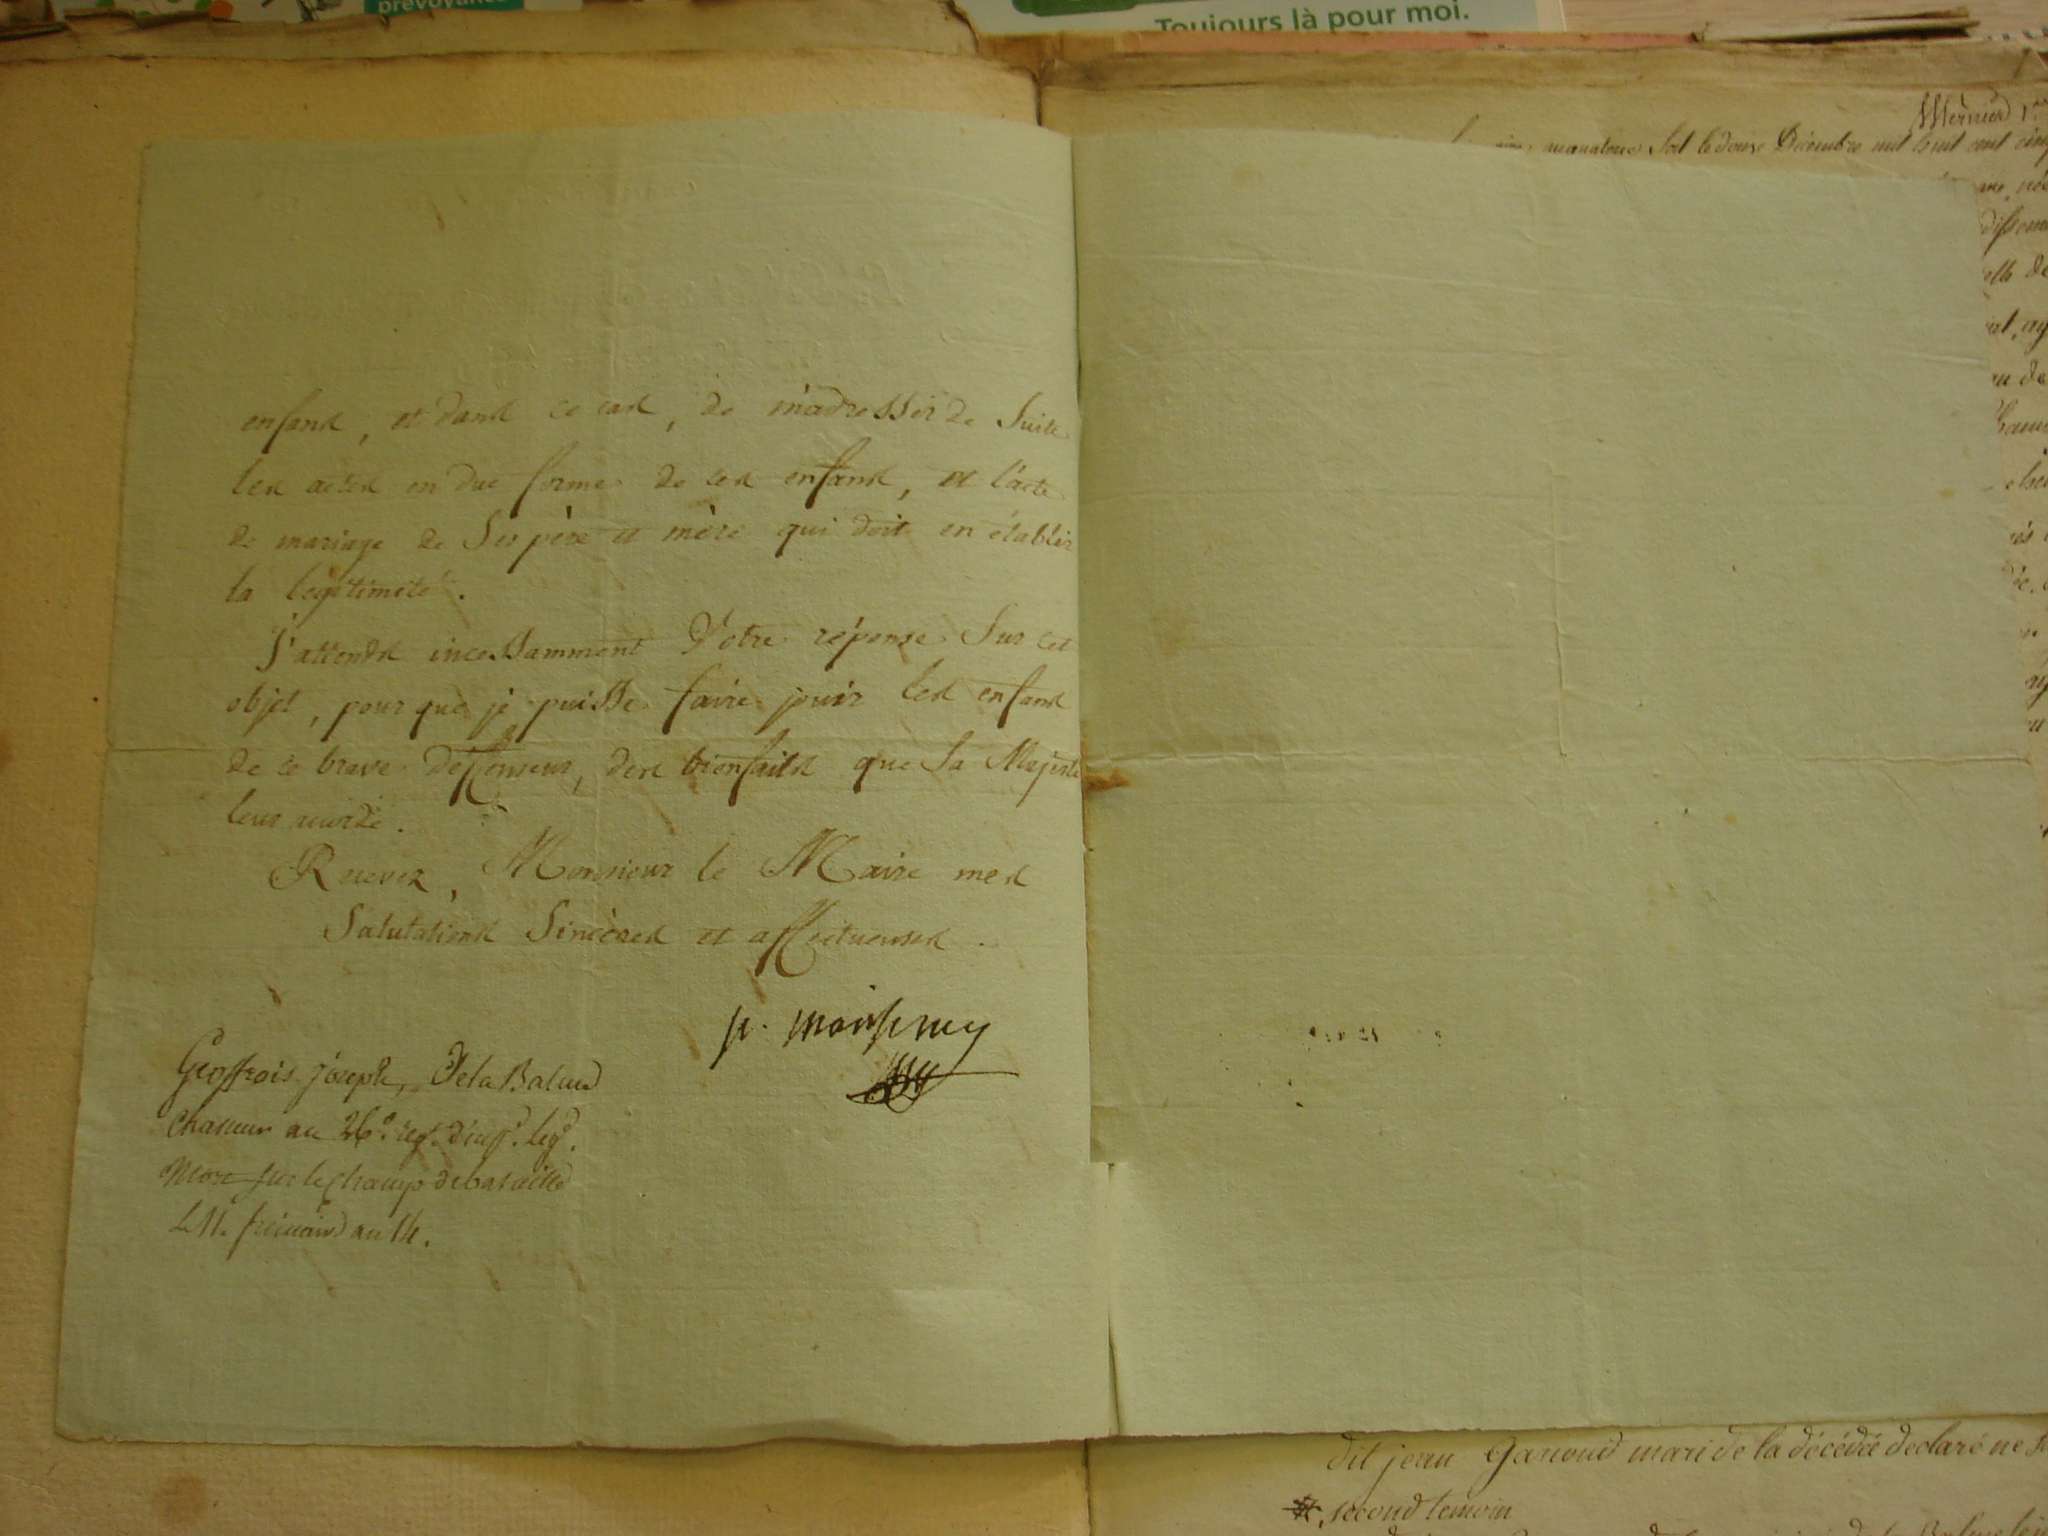 prévoyance
Toujours là pour moi.
enfans, et dans ce cas, de m'adresser de Suite
les actes en due forme de ces enfans, et l'acte
de mariage de Ses père et mère qui doit en établir
la legitimité.
J'attends incessamment Votre réponse Sur cet
objet, pour que je puisse faire jouir les enfans
de ce brave deffenseur, des bienfaits que Sa Majesté
leur accorde.
Recevez, Monsieur le Maire mes
Salutations Sincères et affectueuses.
Geoffrois joseph, De la Balme
Chasseur au 26e. regt. d'inff. leg.
Mort sur le Champ de bataille
Le 11. frimaire an 14.
Soit le douze Décembre mil huit cent
dit jean Ganoud mari de la décédée declaré ne
second temoin